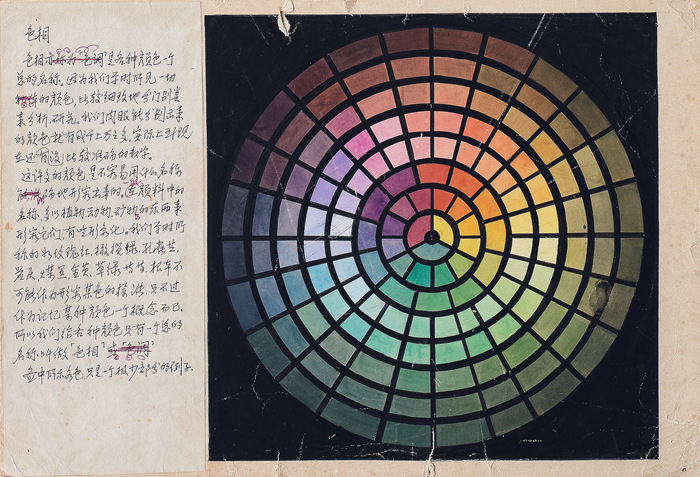 色相
色相亦称为"色调"是各种颜色一个
总的名称，因为我们平时所见一切
的颜色，比较细致地分门别类
来分析、研究，我们肉眼能分别出来
的颜色就有成千上万之多，实际上到现
在还有没有比较准确的数字。
这许多的颜色，是不容易用什么名称
准确地形容出来的，连颜料中的
名称，多以植物动物、矿物的东西来
形容它们有些形象化。我们平时所
称的如玫瑰红、橄榄绿、孔雀蓝、
煤黑、金黄、草绿等等，根本不
可能作为形容某色的标准，只不过
作为记忆某种颜色一个概念而已，
所以我们给各种颜色只有一个总的
名称，叫做"色相"或"色调"
画中所示各色，只是一个极少部分的例子。